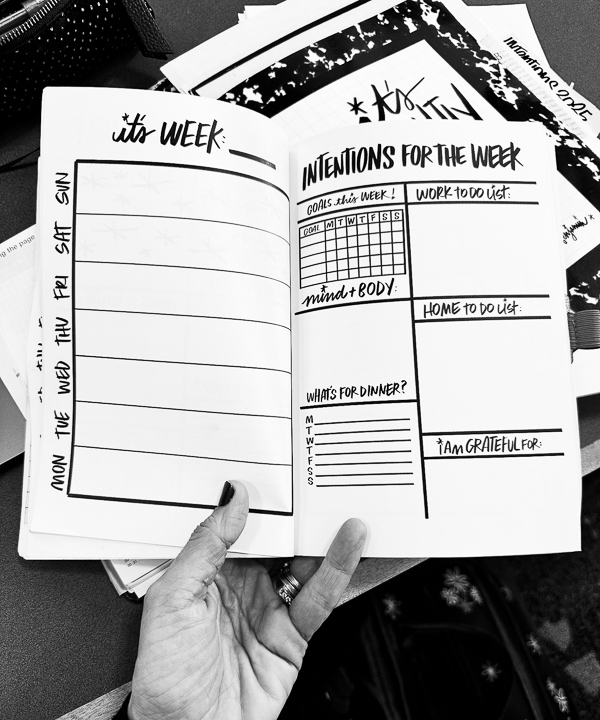 it's WEEK:
SUN
SAT
FRI
THU
WED
TUE
MON
INTENTIONS FOR THE WEEK
GOALS this WEEK!
GOAL M T W T F S S
mind + BODY:
WHAT'S FOR DINNER?
M
T
W
T
F
S
S
WORK TO DO LIST:
HOME TO DO LIST:
i AM GRATEFUL FOR:
it's
INTENTIONS 2025
ng the page